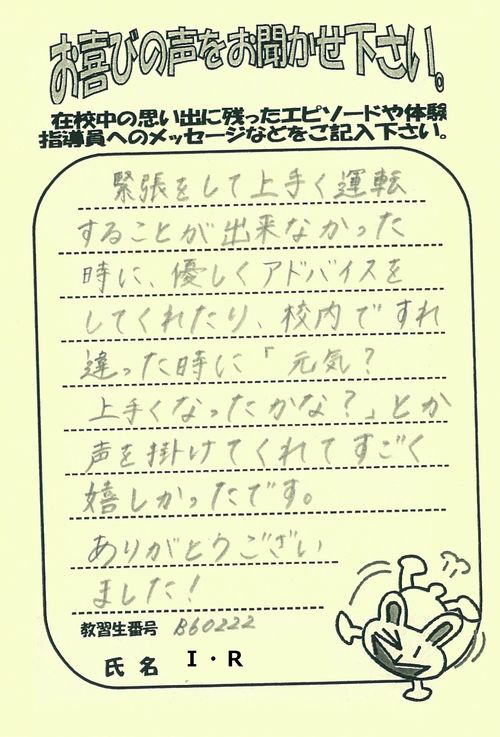 お喜びの声をお聞かせ下さい。
在校中の思い出に残ったエピソードや体験
指導員へのメッセージなどをご記入下さい。
緊張をして上手く運転
することが出来なかった
時に、優しくアドバイスを
してくれたり、校内ですれ
違った時に「元気?
上手くなったかな?」とか
声を掛けてくれてすごく
嬉しかったです。
ありがとうござい
ました!
教習生番号 B60222
氏名 I・R